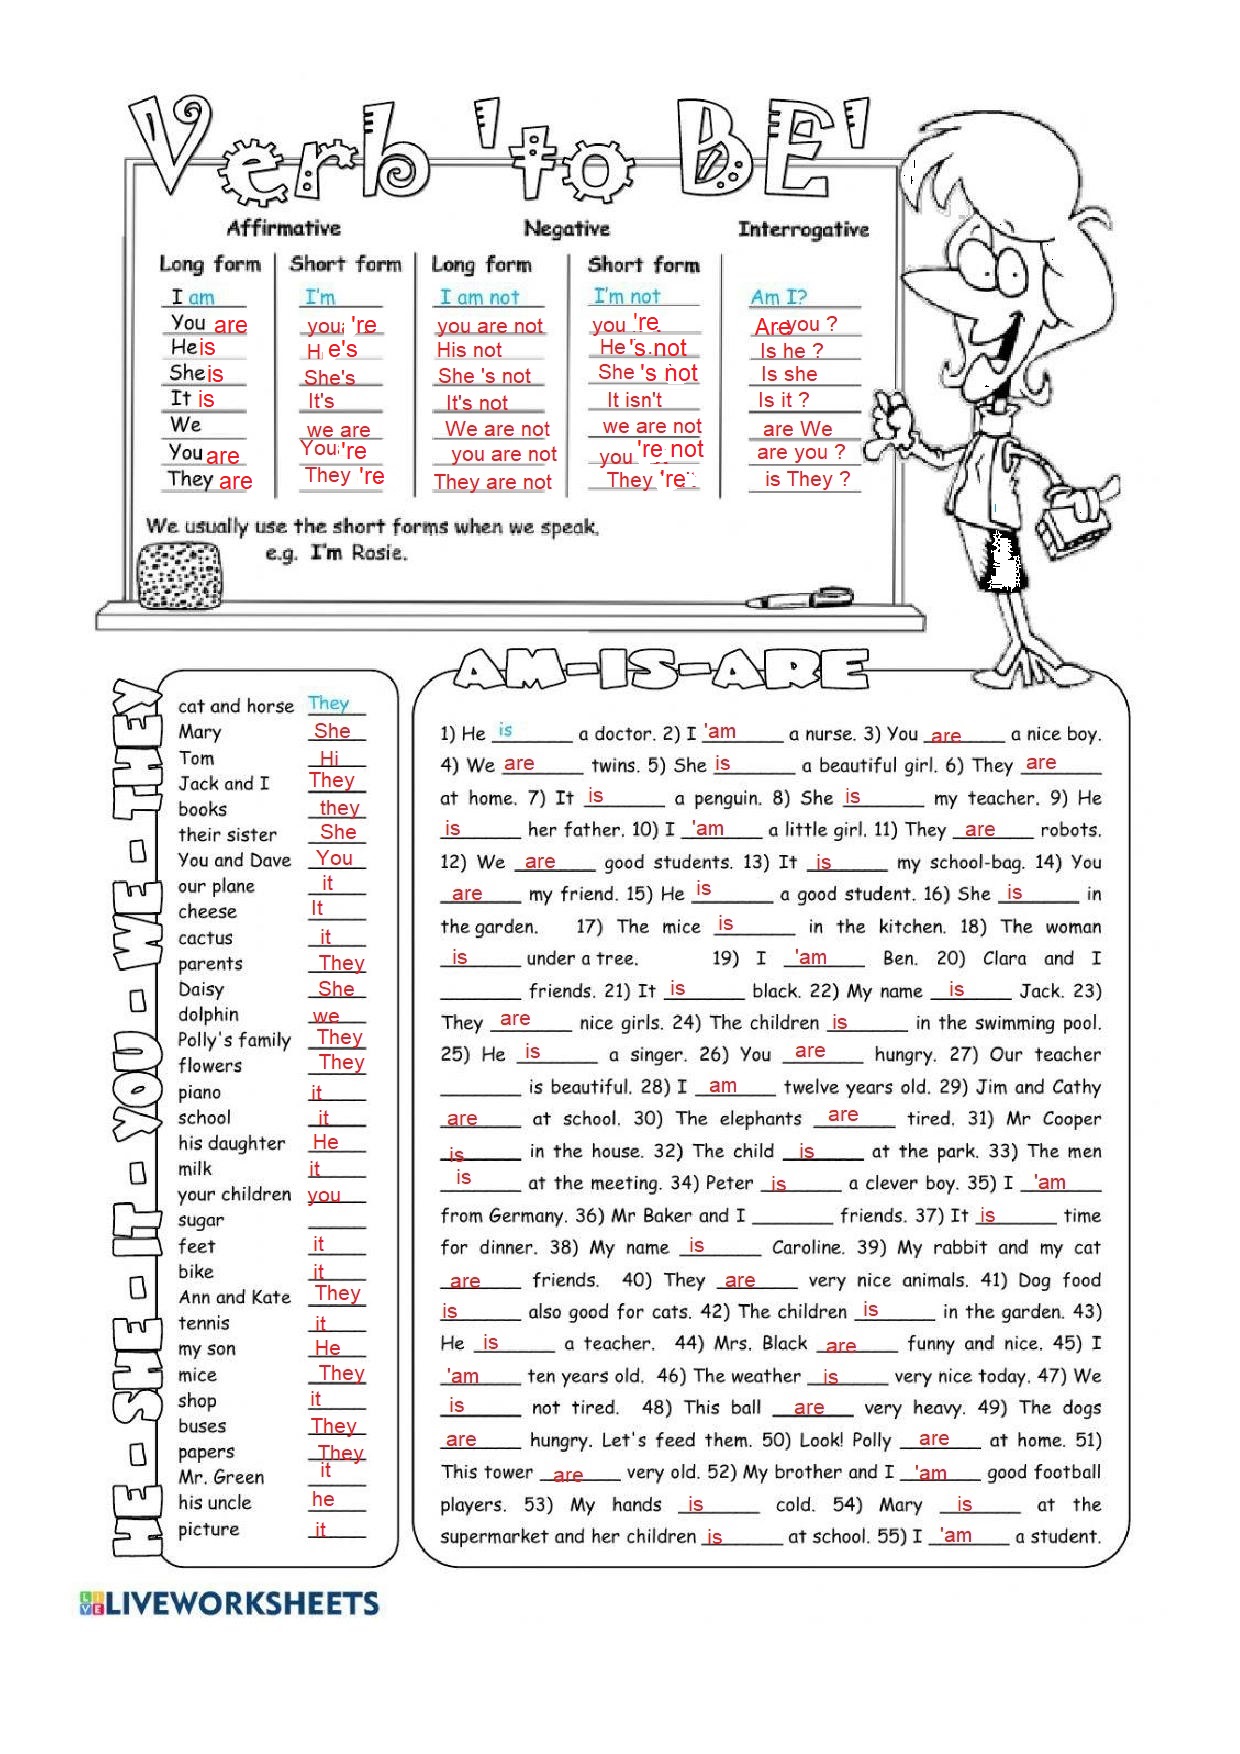 Verb 'to BE'
Affirmative Negative Interrogative
Long form Short form Long form Short form
I am I'm I am not I'm not Am I?
You are you 're you are not you 're Are you ?
He is He's His not He 's not Is he ?
She is She's She 's not She 's not Is she
It is It's It's not It isn't Is it ?
We we are We are not we are not are We
You are You 're you are not you 're not are you ?
They are They 're They are not They 're is They ?
We usually use the short forms when we speak.
e.g. I'm Rosie.
HE - SHE - IT - YOU - WE - THEY
cat and horse They
Mary She
Tom Hi
Jack and I They
books they
their sister She
You and Dave You
our plane it
cheese It
cactus it
parents They
Daisy She
dolphin we
Polly's family They
flowers They
piano it
school it
his daughter He
milk it
your children you
sugar
feet it
bike it
Ann and Kate They
tennis it
my son He
mice They
shop it
buses They
papers They
Mr. Green it
his uncle he
picture it
AM-IS-ARE
1) He is a doctor. 2) I 'am a nurse. 3) You are a nice boy.
4) We are twins. 5) She is a beautiful girl. 6) They are
at home. 7) It is a penguin. 8) She is my teacher. 9) He
is her father. 10) I 'am a little girl. 11) They are robots.
12) We are good students. 13) It is my school-bag. 14) You
are my friend. 15) He is a good student. 16) She is in
the garden. 17) The mice is in the kitchen. 18) The woman
is under a tree. 19) I 'am Ben. 20) Clara and I
friends. 21) It is black. 22) My name is Jack. 23)
They are nice girls. 24) The children is in the swimming pool.
25) He is a singer. 26) You are hungry. 27) Our teacher
is beautiful. 28) I am twelve years old. 29) Jim and Cathy
are at school. 30) The elephants are tired. 31) Mr Cooper
is in the house. 32) The child is at the park. 33) The men
is at the meeting. 34) Peter is a clever boy. 35) I 'am
from Germany. 36) Mr Baker and I friends. 37) It is time
for dinner. 38) My name is Caroline. 39) My rabbit and my cat
are friends. 40) They are very nice animals. 41) Dog food
is also good for cats. 42) The children is in the garden. 43)
He is a teacher. 44) Mrs. Black are funny and nice. 45) I
'am ten years old. 46) The weather is very nice today. 47) We
is not tired. 48) This ball are very heavy. 49) The dogs
are hungry. Let's feed them. 50) Look! Polly are at home. 51)
This tower are very old. 52) My brother and I 'am good football
players. 53) My hands is cold. 54) Mary is at the
supermarket and her children is at school. 55) I 'am a student.
LIVEWORKSHEETS